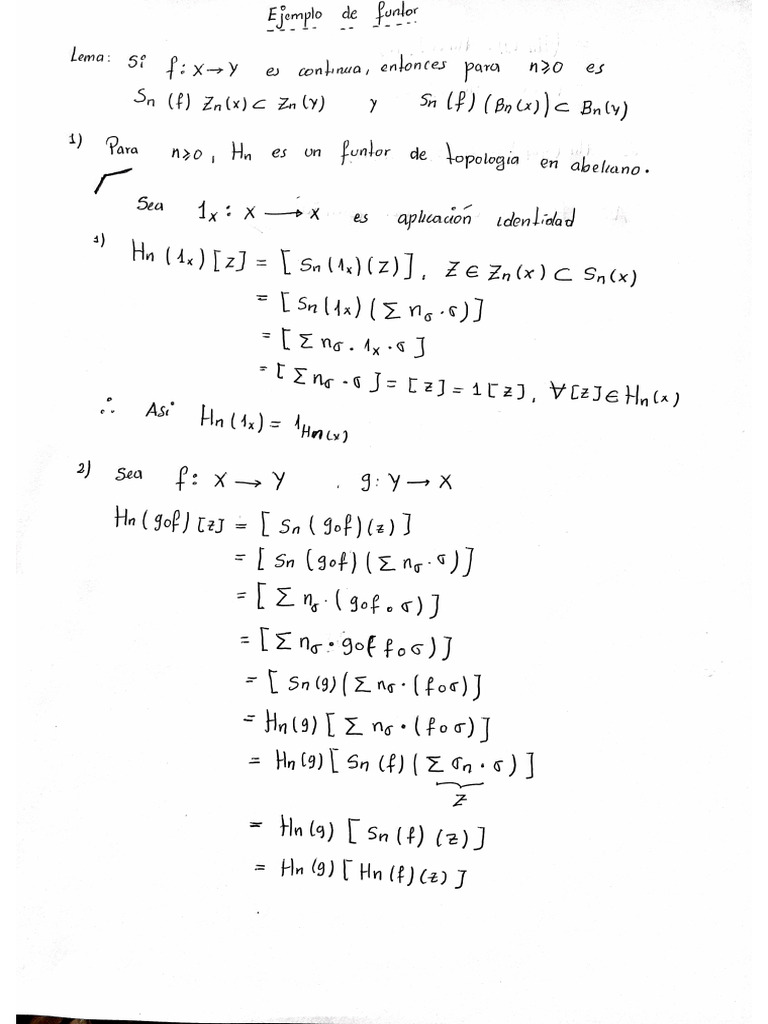 Ejemplo de funtor
Lema: Si f: X → Y es continua, entonces para n⩾0 es
Sn (f) Zn(x) ⊂ Zn(Y) y Sn(f) (Bn(x)) ⊂ Bn(Y)
1) Para n⩾0, Hn es un funtor de topología en abeliano.
Sea 1x : X → X es aplicación identidad
1) Hn (1x) [z] = [ Sn(1x)(z)], Z ∈ Zn(x) ⊂ Sn(x)
= [ Sn(1x) ( Σ nσ · σ)]
= [ Σ nσ . 1x · σ ]
= [ Σ nσ · σ ] = [z] = 1[z], ∀[z] ∈ Hn(x)
∴ Asi Hn(1x) = 1Hn(x)
2) Sea f: X → Y . g: Y → X
Hn(gof)[z] = [ Sn(gof)(z)]
= [ Sn (gof) ( Σ nσ · σ)]
= [ Σ nσ · ( gof o σ)]
= [ Σ nσ · gof f o σ)]
= [ Sn(g) ( Σ nσ · (f o σ)]
= Hn(g) [ Σ nσ · (f o σ)]
= Hn(g) [ Sn (f) ( Σ σn · σ)]
Z
= Hn(g) [ Sn(f) (z)]
= Hn(g) [ Hn(f)(z)]